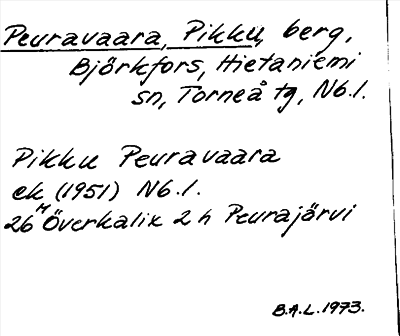 Peuravaara, Pikku, berg,
Björkfors, Hietaniemi
sn, Torneå tg, Nb.l.
Pikku Peuravaara
ek (1951) Nb.l.
26 M Överkalix 2 h Peurajärvi
B.A.L. 1973.